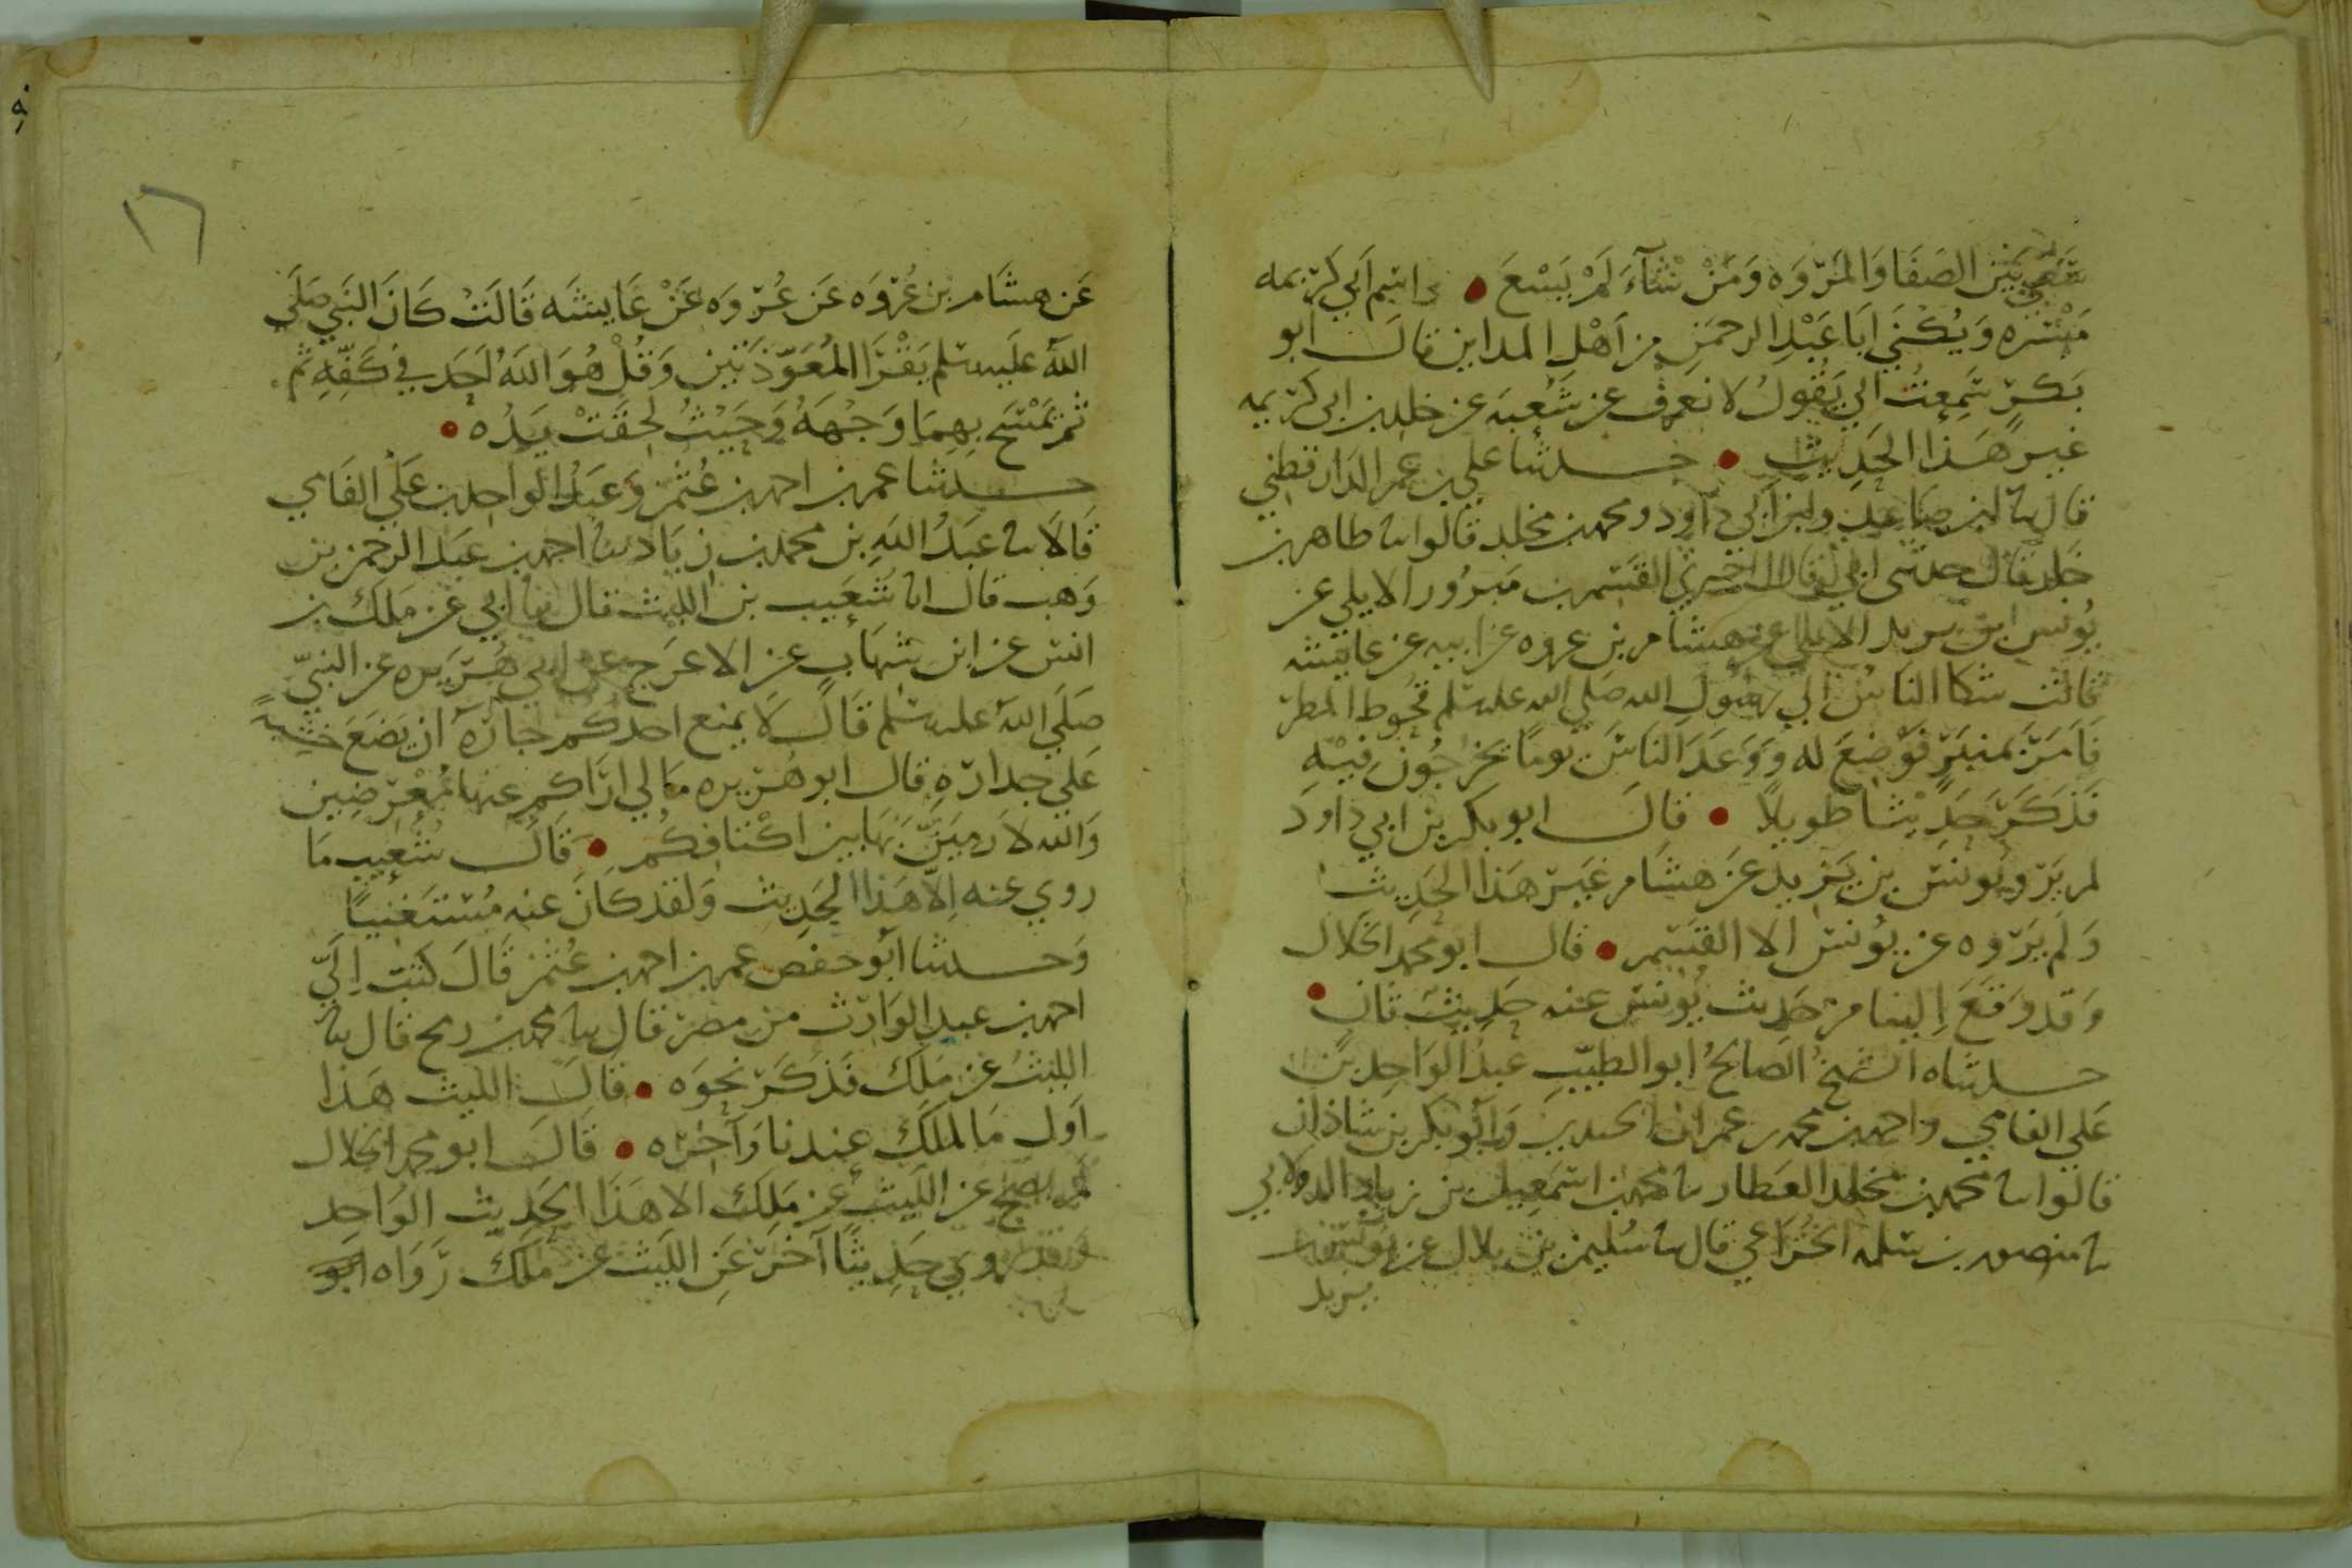 بين الصَفَا وَالمَرْوَه وَمَنْ شآءَ لَمْ يَسْعَ • واسم ابي كريمه
مَيْسَره وَيُكْنَي اَبَا عَبْدِ الرحمَن من اَهْل المداين قالَ ابو
بَكرٍ سَمِعتُ ابي يَقُولُ لا نعرف عن شُعبَه عن خلد بن ابي كريمه
غيرَ هَذا الحَدِيثِ • حدثنا علي بن عمر الدَار قطني
قال نا ابن صَاعِد وابن ابي دَاود ومحمد بن مخلد قالوا نا طاهر بن
خَلد قال حدثني ابي قال اخبرني القسم بن مَبرُور الايلي عن
يُونس بن يزيد الايلي عن هشام بن عروه عن ابيه عن عايشه
قالت شكا الناسُ الي رسُولِ الله صَلي الله عليه سلم قحُوط المَطر
فَامَرَ بمنبَرٍ فوُضعَ له وَوَعَدَ الناسَ يومًا يخرجُون فيْهِ
فَذَكَرَ حَدِيْثا طويلًا • قالَ ابو بكر بن ابي داودَ
لم يَرْو يُونسُ بن يَزيد عَن هشَام غيَر هَذا الحَدِيث
وَلَم يَرْوه عن يُونس الا القسَم • قال ابو محمد الخلال
وَقد وَقَعَ اِلينا من حَديث يُونس عنه حَدِيثٌ ثانٍ •
حدثناه الشَيخُ الصَالحُ ابو الطيّب عبدُ الوَاحِد بن
عَلي الفامي واحمد بن محمد بن عمران الجندي وَابُو بَكر بن شاذان
قالوا نا محمد بن مخلد العَطار نا محمد بن اسمَعِيل بن زياد الدولابي
نا منصور بن سَلمه الخُزَاعي قال نا سُليمن بن بلال عن يونس بن
يزيد
١٦
عَن هشَام بن عُروَه عَن عُروَه عَنْ عَايشَه قَالَتْ كَانَ النبي صَلَي
اللهُ عليه سلم يَقْرَا المُعَوّذَتَيْن وَقُلْ هُوَ اللهُ اَحَد في كَفّهِ ثم
ثم يَمْسَح بِهِمَا وَجْهَهُ وَحَيْثُ لحِقَتْ يَدُه •
حدثنا عمر بن احمد بن عُثمن وَعَبدُ الواحد بن عَلي الفَامي
قَالَا نا عَبدُ اللهِ بن محمد بن زيَاد نا احمد بن عَبد الرحمن بن
وَهب قال انا شُعَيب بن الليث قال نا ابي عن مَلك بن
انس عن ابن شهَاب عن الاعرَج عن ابي هُرَيَره عن النبيّ
صَلي اللهُ عليه سلم قَال لَا يمنع احدكم جارَهُ ان يَضَعَ خَشبةً
عَلي جدارِهِ قال ابو هُرَيره مَالي ارَاكم عنها مُعْرضِين
وَالله لارميَنَّ بهَا بين اكْتَافكم • قَالَ شُعَيب مَا
روي عنه اِلّا هَذا الحَدِيث وَلَقد كَانَ عنه مُسْتَغنيًا
وَحدثنا ابُو حفص عمر بن احمد بن عُثمن قَالَ كتبَ اِليَّ
احمد بن عبد الوَارث من مصرَ قال نا محمد بن رمح قال نا
الليثُ عن مَلك فَذكَرَ نحوَه • قالَ الليث هَذا
اَول مَا لمَلك عِندنا وَآخرُه • قَالَ ابو محمد الخلال
لم يصحّ عن الليث عن مَلِك الا هَذا الحَدِيث الوَاحِد
وَقد رُوي حَدِيثًا آخَر عَنِ الليث عن مَلك رَوَاه ابو